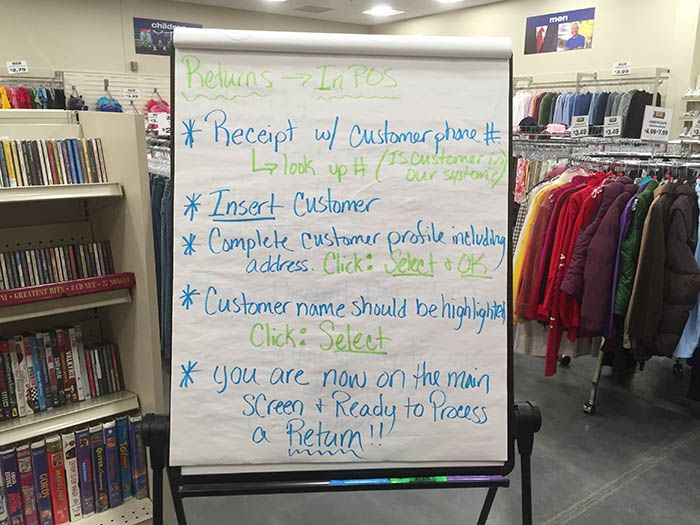 children
men
Returns → In POS
* Receipt w/ customer phone #
↳ look up # (Is customer in
our system?)
* Insert Customer
* Complete customer profile including
address. Click: Select + OK
* Customer name should be highlighted
Click: Select
* you are now on the main
screen + Ready to Process
a Return!!
GREATEST HITS • 3 CD SET • 27 SONGS!
$2.79
$3.49
$3.49
$4.99